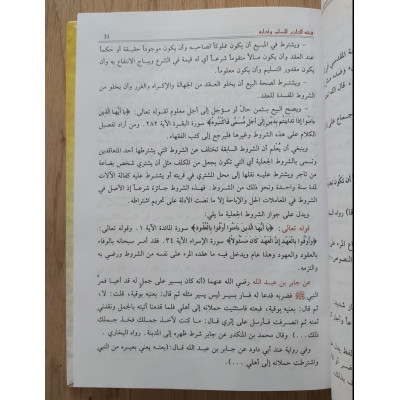 فقه التاجر المسلم وآدابه 31
– ويشترط في المبيع أن يكون مملوكاً لصاحبه وأن يكون موجوداً حقيقة أو حكماً
عند العقد وأن يكون مالاً متقوماً شرعاً أي له قيمة في الشرع ويباح الانتفاع به وأن
يكون مقدور التسليم وأن يكون معلوماً.
– ويشترط لصحة البيع أن يخلو العقد من الجهالة والإكراه والغرر وأن يخلو من
الشروط المفسدة للعقد.
– ويصح البيع بثمن حال أو مؤجل إلى أجل معلوم لقوله تعالى: ﴿يا أيها الذين
آمنوا إذا تداينتم بدين إلى أجل مسمى فاكتبوه﴾ سورة البقرة الآية ٢٨٢. ومن أراد تفصيل
الكلام على هذه الشروط وغيرها فليرجع إلى كتب الفقهاء.
وينبغي أن يُعلم أن الشروط السابقة تختلف عن الشروط التي يشترطها أحد المتعاقدين
وتسمى بالشروط الجعلية أي التي تكون بجعل من المكلف مثل أن يشتري شخص بضاعة
من تاجر ويشترط عليه نقلها إلى محل المشتري في قريته أو يشترط عليه كفالة الآلات
لمدة سنة واحدة ونحو ذلك من الشروط. فهذه الشروط جائزة شرعاً إذ الأصل في
الشروط في المعاملات الحل والإباحة إلا ما نصت الأدلة على تحريم اشتراطه.
ويدل على جواز الشروط الجعلية ما يلي:
قوله تعالى: ﴿يا أيها الذين آمنوا أوفوا بالعقود﴾ سورة المائدة الآية ١. وقوله تعالى:
﴿وأوفوا بالعهد إن العهد كان مسئولاً﴾ سورة الإسراء الآية ٣٤. فقد أمر سبحانه بالوفاء
بالعقود والعهود وهذا عام ويدخل فيه ما عقده المرء على نفسه من الشروط ورضي به
والتزمه.
عن جابر بن عبد الله رضي الله عنهما (أنه كان يسير على جمل له قد أعيا فمر
النبي ﷺ فضربه فدعا له فسار بسير ليس يسير مثله ثم قال: بعنيه بوقية، قلت: لا،
ثم قال: بعنيه بوقية، فبعته فاستثنيت حملانه إلى أهلي فلما قدمنا أتيته بالجمل ونقدني
ثمنه ثم انصرفت فأرسل على إثري، قال: ما كنت لآخذ جملك فخذ جملك
ذلك ...) وقال محمد بن المنكدر عن جابر شرط ظهره إلى المدينة. رواه البخاري.
وفي رواية عند أبي داود عن جابر بن عبد الله قال: (بعته يعني بعيره من النبي
واشترطت حملانه إلى أهلي ...).